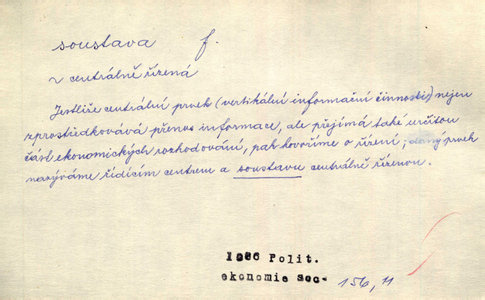 soustava f.
~ centrálně řízená
Jestliže centrální prvek (vertikální informační činnosti) nejen
zprostředkovává přenos informace, ale přejímá také určitou
část ekonomických rozhodování, pak hovoříme o řízení; daný prvek
nazýváme řídícím centrem a soustavu centrálně řízenou.
1966 Polit.
ekonomie soc- 156, 11